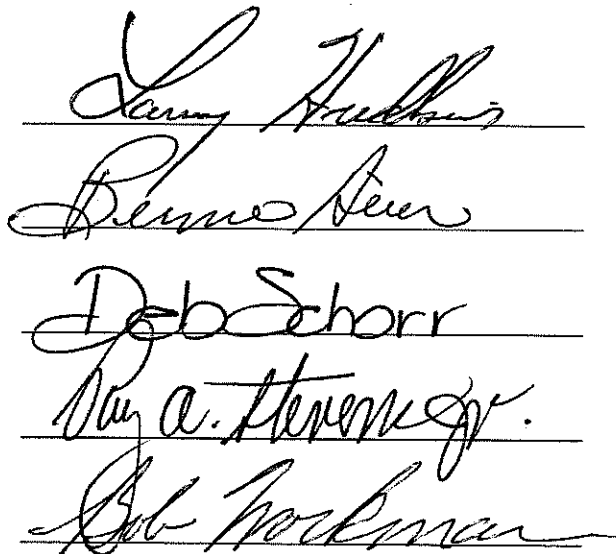 Larry Hudkins
Bernie Heier
Deb Schorr
Ray A. Stevens Jr.
Bob Workman